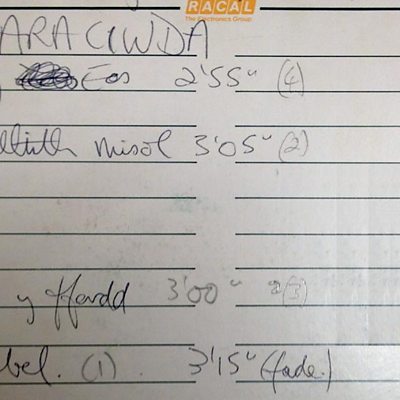 RACAL
The Electronics Group
ARA GWDA
Eos 2'55" (4)
misol 3'05" (2)
y ffordd 3'00" (3)
bel. (1). 3'15" (fade.)